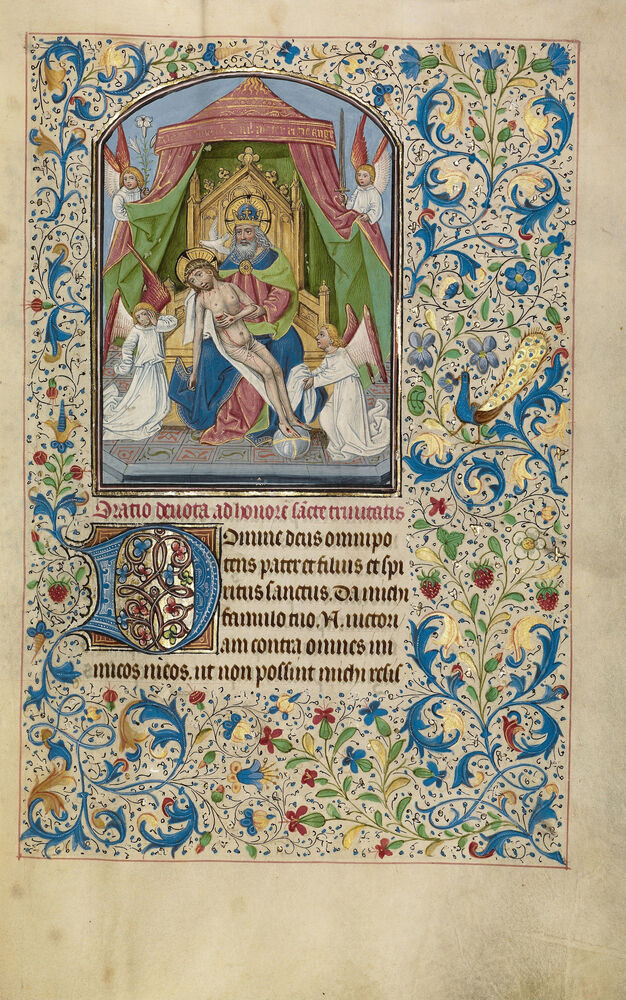 Oratio devota ad honorē sācte trinitatis
Domine deus omnipo
tens pater et filius et spi
ritus sanctus. Da michi
famulo tuo .N. victori
am contra omnes ini
micos meos. ut non possint michi resis